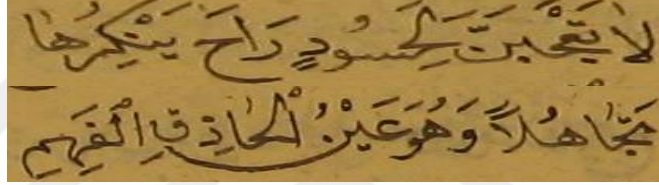 لَا تَعْجَبَنَّ لِحَسُودٍ رَاحَ يُنْكِرُهَا
تَجَاهُلًا وَهُوَ عَيْنُ الْحَاذِقِ الْفَهِمِ